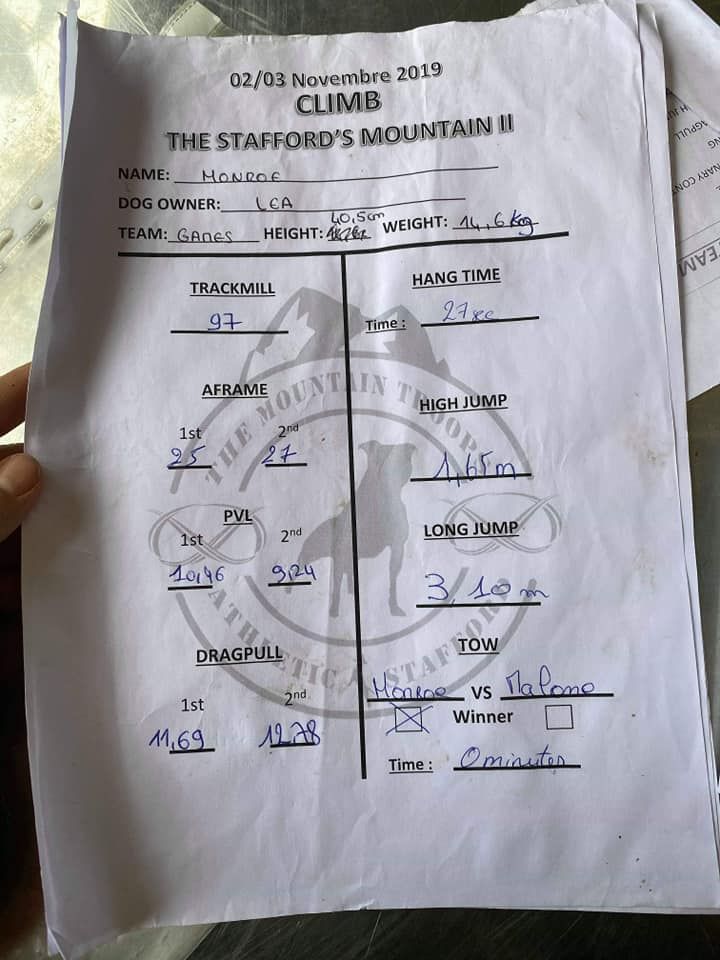 02/03 Novembre 2019
CLIMB
THE STAFFORD'S MOUNTAIN II
NAME: MONROE
DOG OWNER: LEA
40,5cm
TEAM: GAMES HEIGHT: WEIGHT: 14,6kg
TRACKMILL
97
AFRAME
1st 2nd
25 27
PVL
1st 2nd
10,46 9,24
DRAGPULL
1st 2nd
11,69 12,78
HANG TIME
Time : 27sec
HIGH JUMP
1,65m
LONG JUMP
3,10m
TOW
Monroe VS Malone
Winner
Time : 0minutes
THE MOUNTAIN TROOP
ATHLETIC STAFFORD
AGPULL
NARY CONT
TEAM